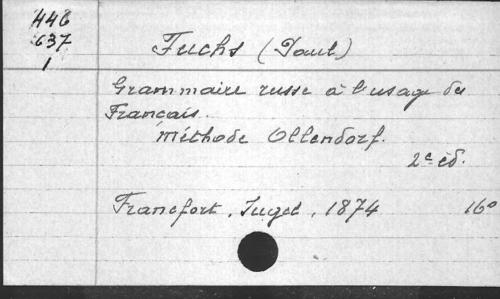 446
637
1
Fuchs (Paul)
Grammaire russe à l'usage des
Français.
Méthode Ollendorf.
2e éd.
Francfort, Jugel, 1874 16°